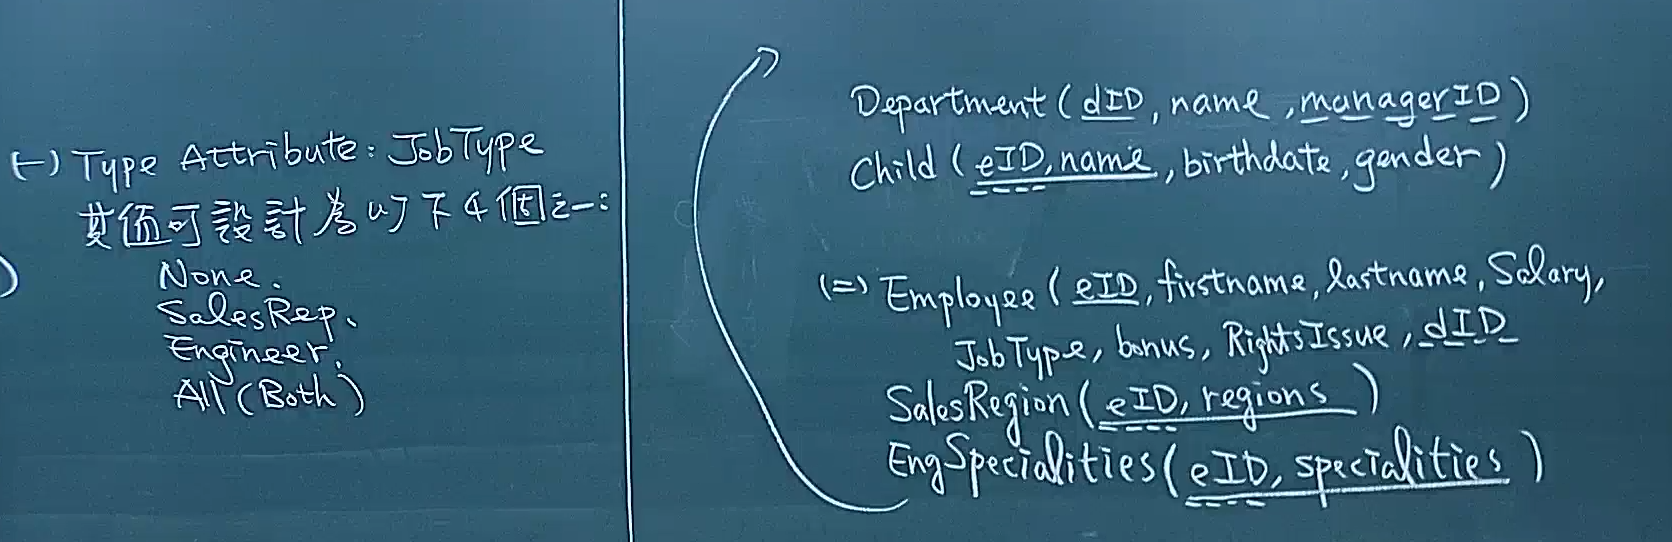 (一) Type Attribute: JobType
其值可設計為以下4個之一:
None.
SalesRep、
Engineer、
All(Both)
Department (dID, name, managerID)
Child (eID, name, birthdate, gender)
(二) Employee (eID, firstname, lastname, Salary,
JobType, bonus, RightsIssue, dID
SalesRegion(eID, regions)
EngSpecialities(eID, specialities)